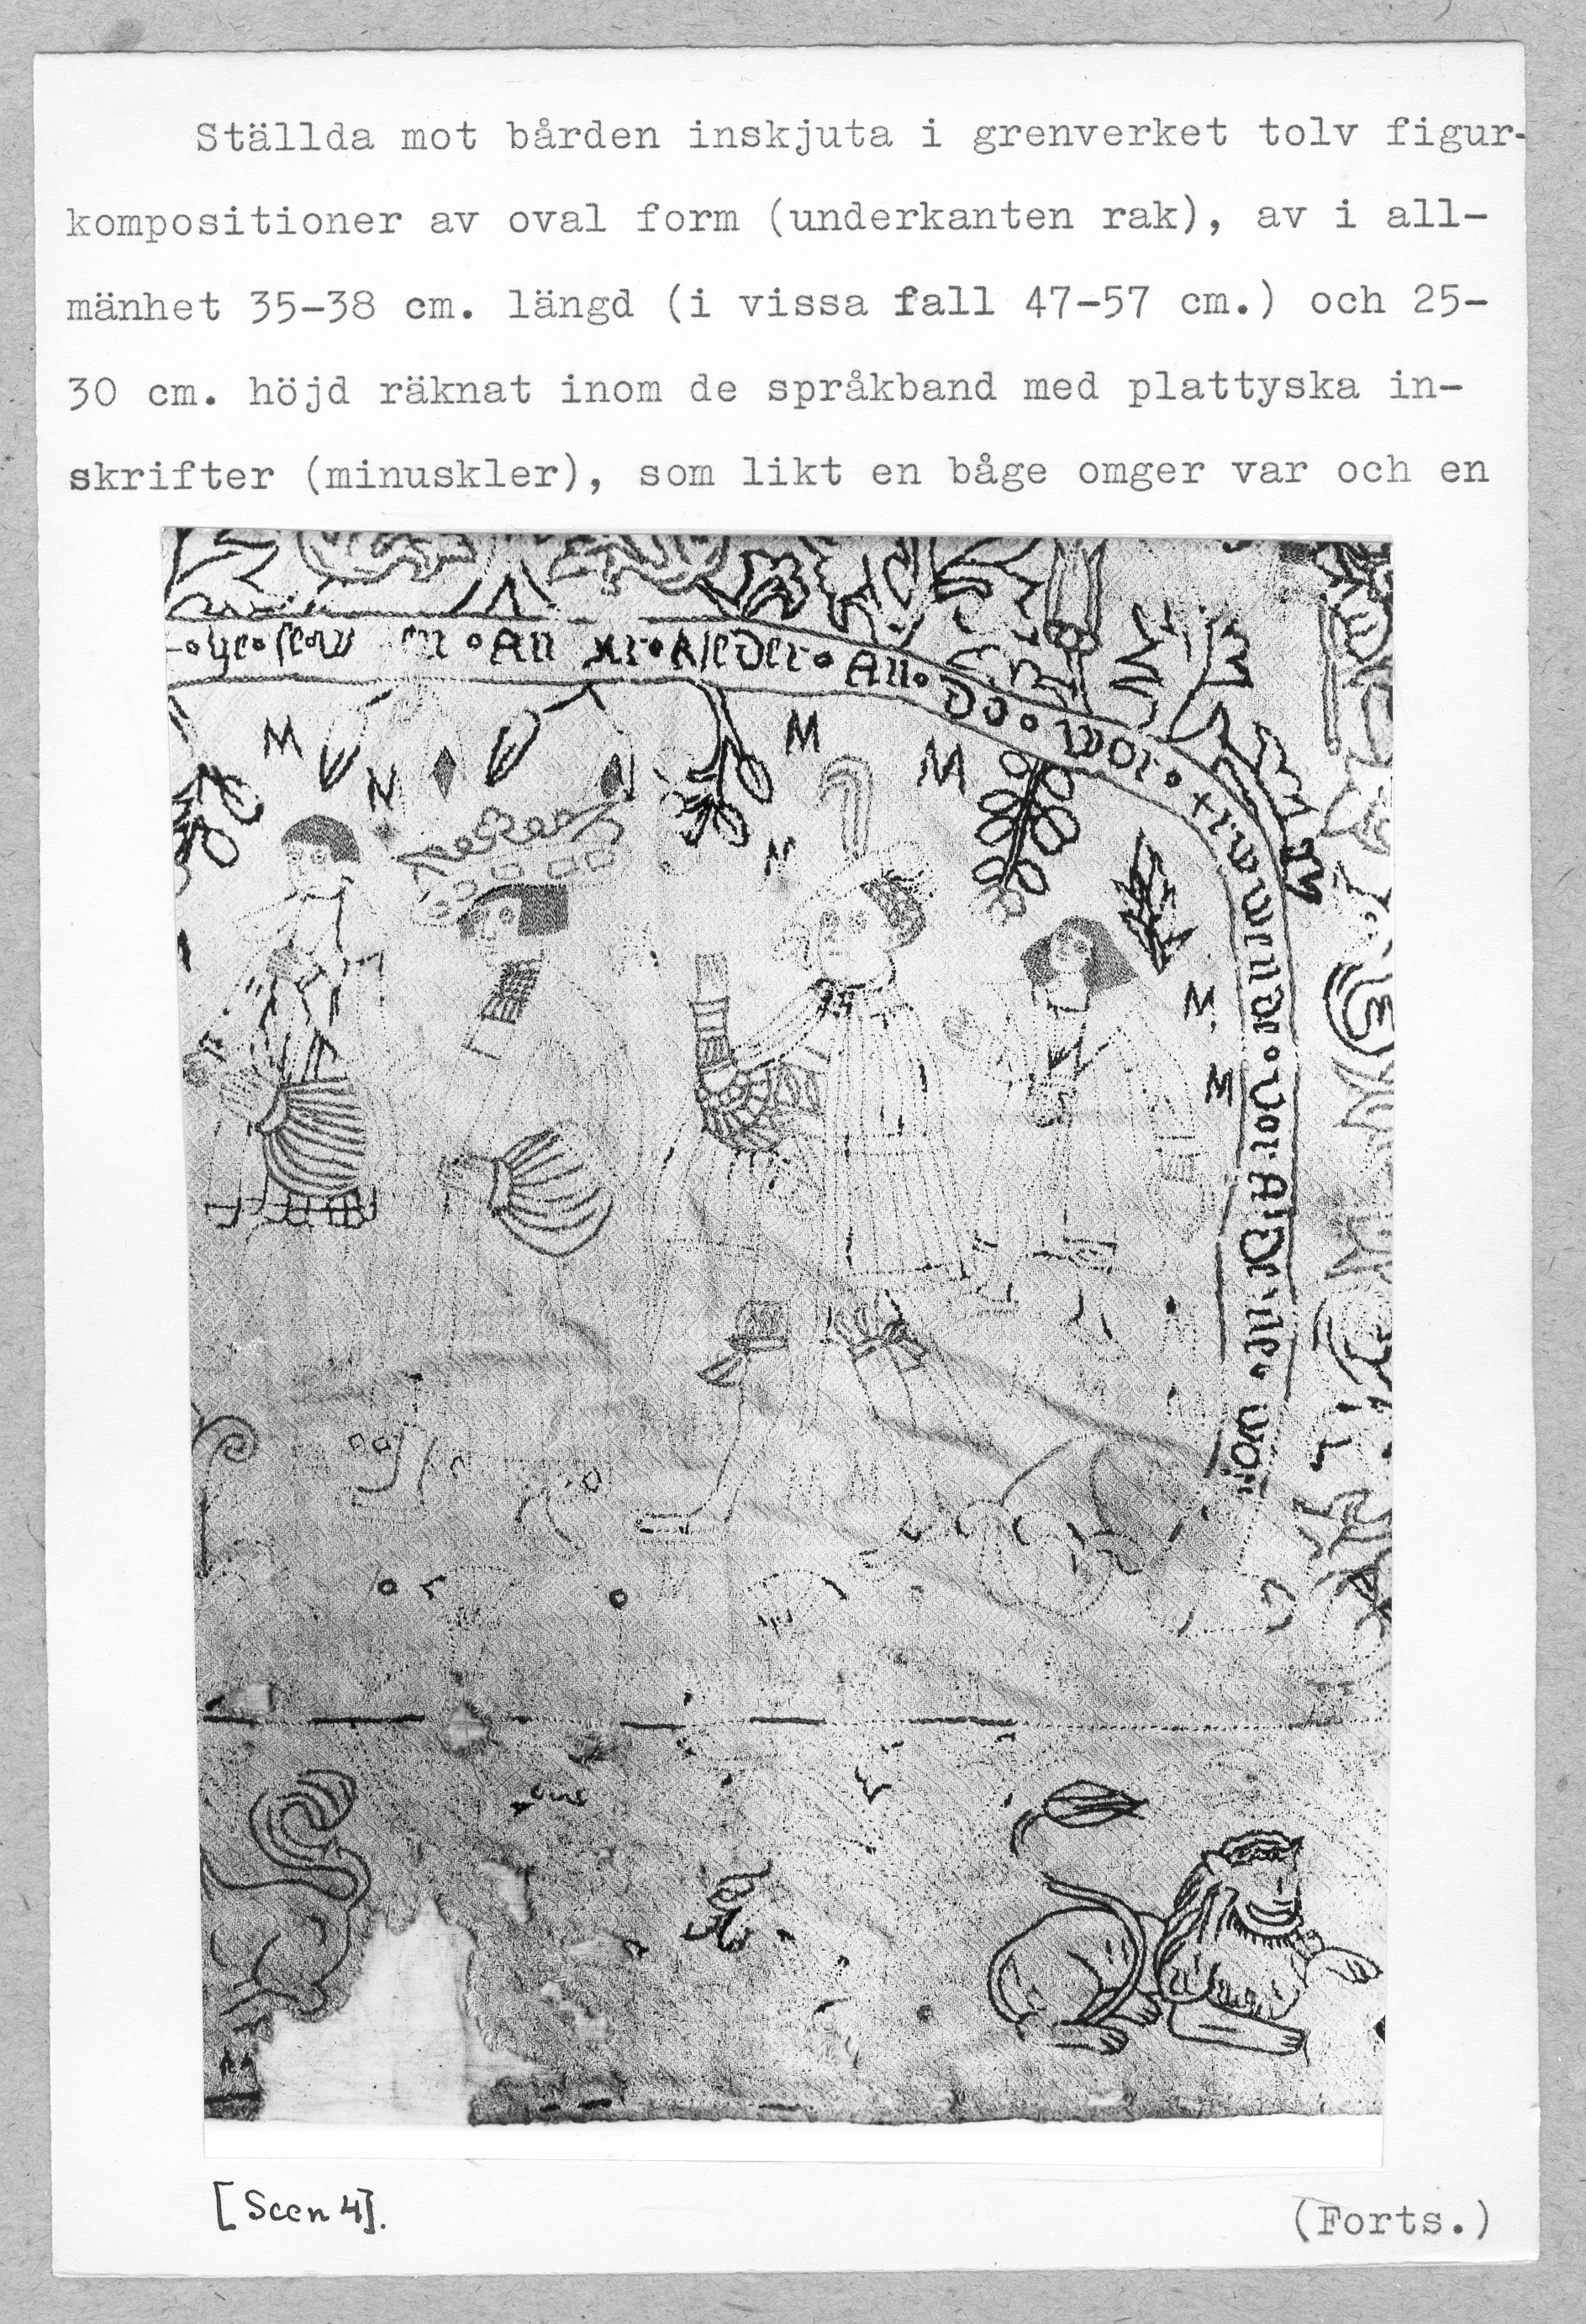 Ställda mot bården inskjuta i grenverket tolv figur-
kompositioner av oval form (underkanten rak), av i all-
mänhet 35-38 cm. längd (i vissa fall 47-57 cm.) och 25-
30 cm. höjd räknat inom de språkband med plattyska in-
skrifter (minuskler), som likt en båge omger var och en
An Kleder An do wor
von
M N M M
N
M
M
[Scen 4].
(Forts.)